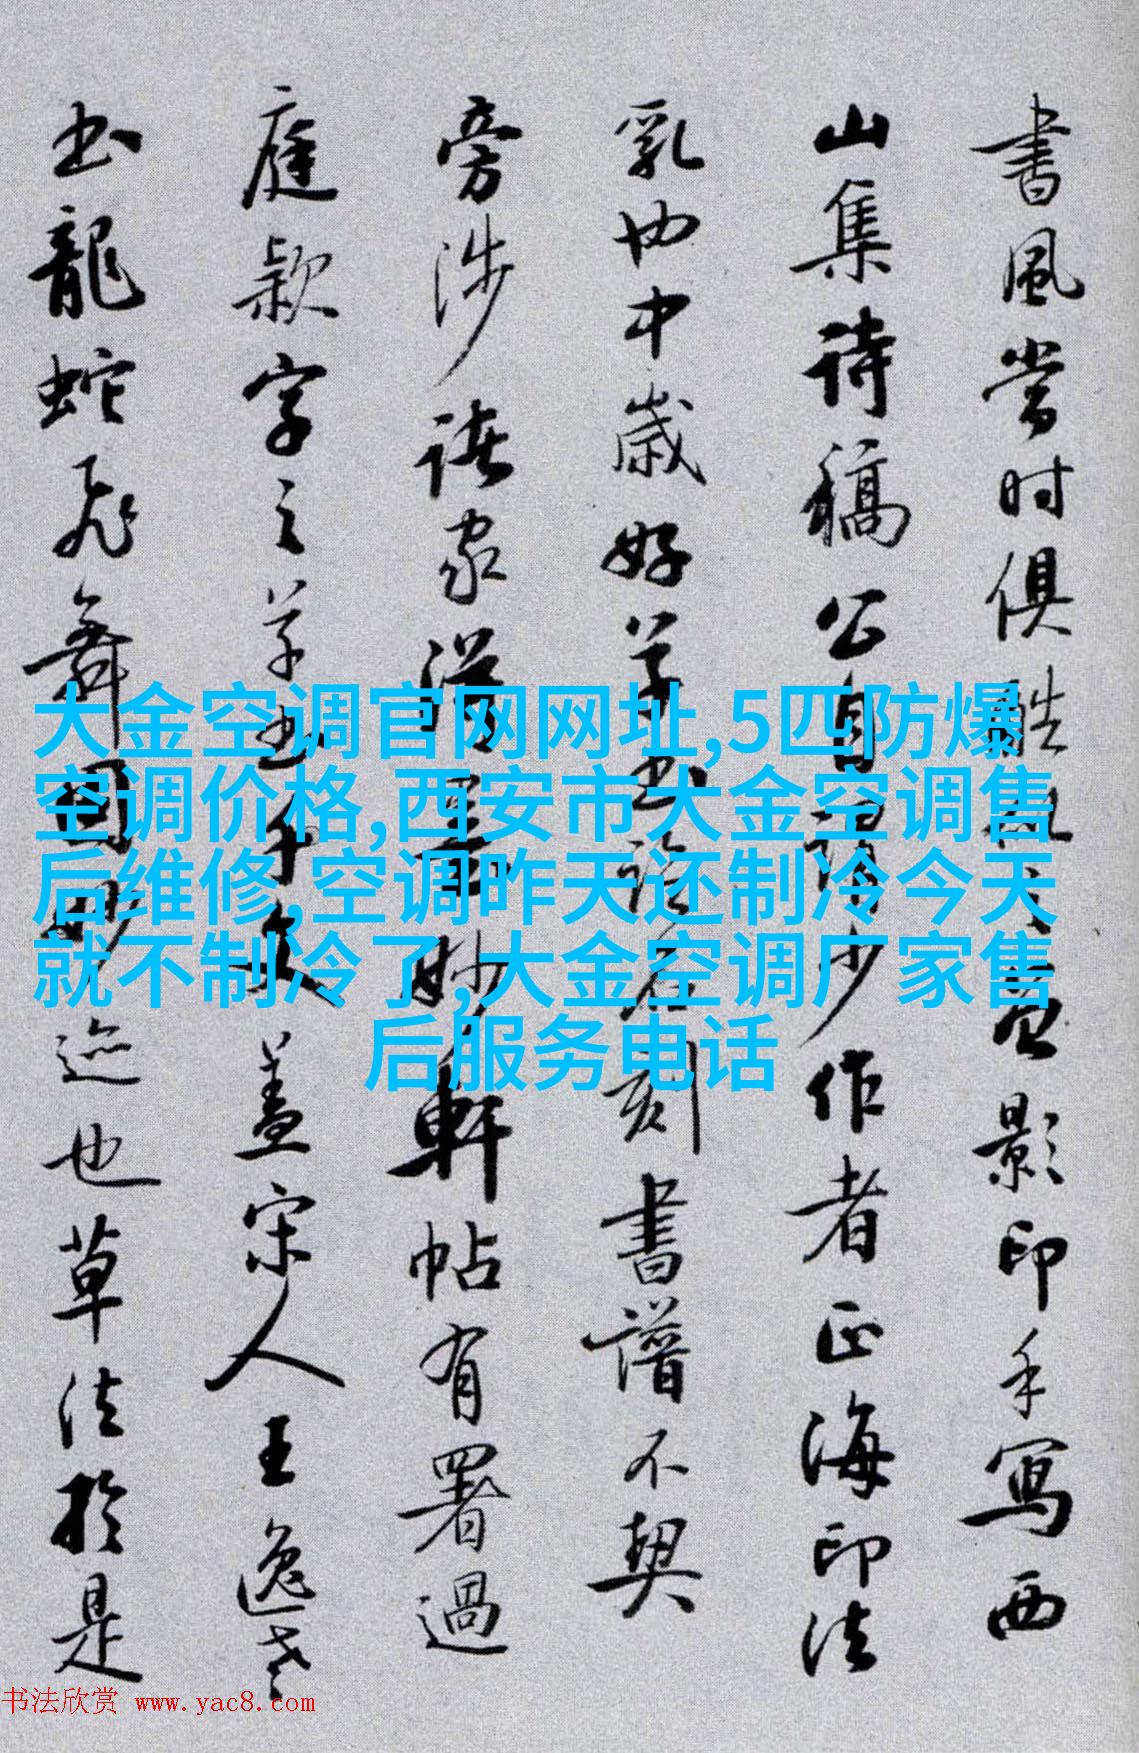 書風當時俱酷似之魚影印手寫西
山集詩稿公自謂少作者正海印法
乳也中歲好草書論右刻書譜不契
旁涉諸家得墨妙軒帖有署過
庭款字之草書千文蓋宋人王逸老
書龍蛇飛舞固妙迹也草法於是
大金空调官网网址,5匹防爆
空调价格,西安市大金空调售
后维修,空调昨天还制冷今天
就不制冷了,大金空调厂家售
后服务电话
书法欣赏 www.yac8.com